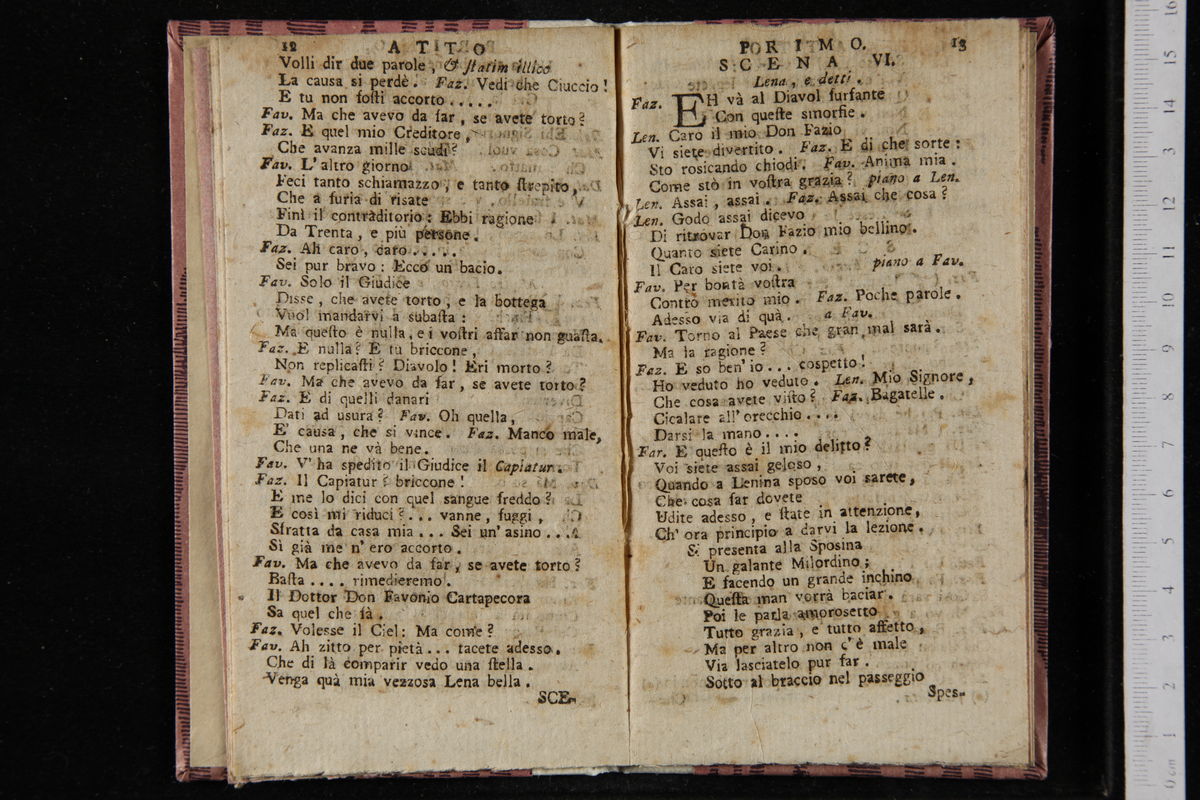 12 ATTO
Volli dir due parole, & ſtatim illico
La causa si perdè. Faz. Vedi che Ciuccio!
E tu non foſti accorto.....
Fav. Ma che avevo da far, se avete torto?
Faz. E quel mio Creditore,
Che avanza mille scudi?
Fav. L'altro giorno
Feci tanto schiamazzo, e tanto ſtrepito,
Che a furia di risate
Finì il contradditorio: Ebbi ragione
Da Trenta, e più persone.
Faz. Ah caro, caro.....
Sei pur bravo: Ecco un bacio.
Fav. Solo il Giudice
Disse, che avete torto, e la bottega
Vuol mandarvi a subaſta:
Ma queſto è nulla, e i voſtri affar non guaſta.
Faz. E nulla? E tu briccone,
Non replicaſti? Diavolo! Eri morto?
Fav. Ma che avevo da far, se avete torto?
Faz. E di quelli danari
Dati ad usura? Fav. Oh quella,
E' causa, che si vince. Faz. Manco male,
Che una ne và bene.
Fav. V' ha spedito il Giudice il Capiatur.
Faz. Il Capiatur? briccone!
E me lo dici con quel sangue freddo?
E così mi riduci?... vanne, fuggi,
Sfratta da casa mia... Sei un' asino...
Sì già me n' ero accorto.
Fav. Ma che avevo da far, se avete torto?
Baſta.... rimedieremo.
Il Dottor Don Favonio Cartapecora
Sa quel che fà.
Faz. Volesse il Ciel: Ma come?
Fav. Ah zitto per pietà... tacete adesso.
Che di là comparir vedo una ſtella.
Venga quà mia vezzosa Lena bella.
SCE-
PRIMO. 13
SCENA VI.
Lena, e detti.
Faz. EH và al Diavol furfante
Con queſte smorfie.
Len. Caro il mio Don Fazio
Vi siete divertito. Faz. E di che sorte:
Sto rosicando chiodi. Fav. Anima mia.
Come stò in voſtra grazia? piano a Len.
Len. Assai, assai. Faz. Assai che cosa?
Len. Godo assai dicevo
Di ritrovar Don Fazio mio bellino.
Quanto siete Carino.
Il Caro siete voi. piano a Fav.
Fav. Per bontà voſtra
Contro merito mio. Faz. Poche parole.
Adesso via di quà. a Fav.
Fav. Torno al Paese che gran mal sarà.
Ma la ragione?
Faz. E so ben'io... cospetto!
Ho veduto ho veduto. Len. Mio Signore,
Che cosa avete viſto? Faz. Bagatelle.
Cicalare all' orecchio....
Darsi la mano....
Far. E queſto è il mio delitto?
Voi siete assai geloso,
Quando a Lenina sposo voi sarete,
Che cosa far dovete
Udite adesso, e ſtate in attenzione,
Ch' ora principio a darvi la lezione.
Si presenta alla Sposina
Un galante Milordino;
E facendo un grande inchino
Queſta man vorrà baciar.
Poi le parla amorosetto
Tutto grazia, e tutto affetto,
Ma per altro non c'è male
Via lasciatelo pur far.
Sotto al braccio nel passeggio
Spes-